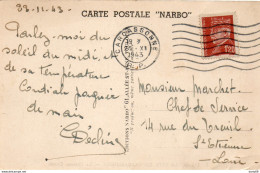 CARTE POSTALE "NARBO"
Parlez-moi du
soleil du midi, et
de sa température
Cordiale poignée
de main
CARCASSONNE
1943
Monsieur Marchet
Chef de Service
4 rue du Treuil
St Etienne
Loire